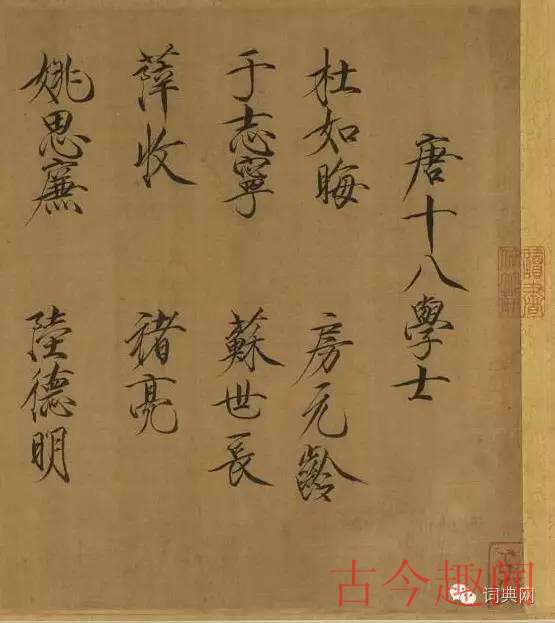 唐十八學士
杜如晦 房元齡
于志寧 蘇世長
薛收 褚亮
姚思廉 陸德明
古今趣闻
词典网